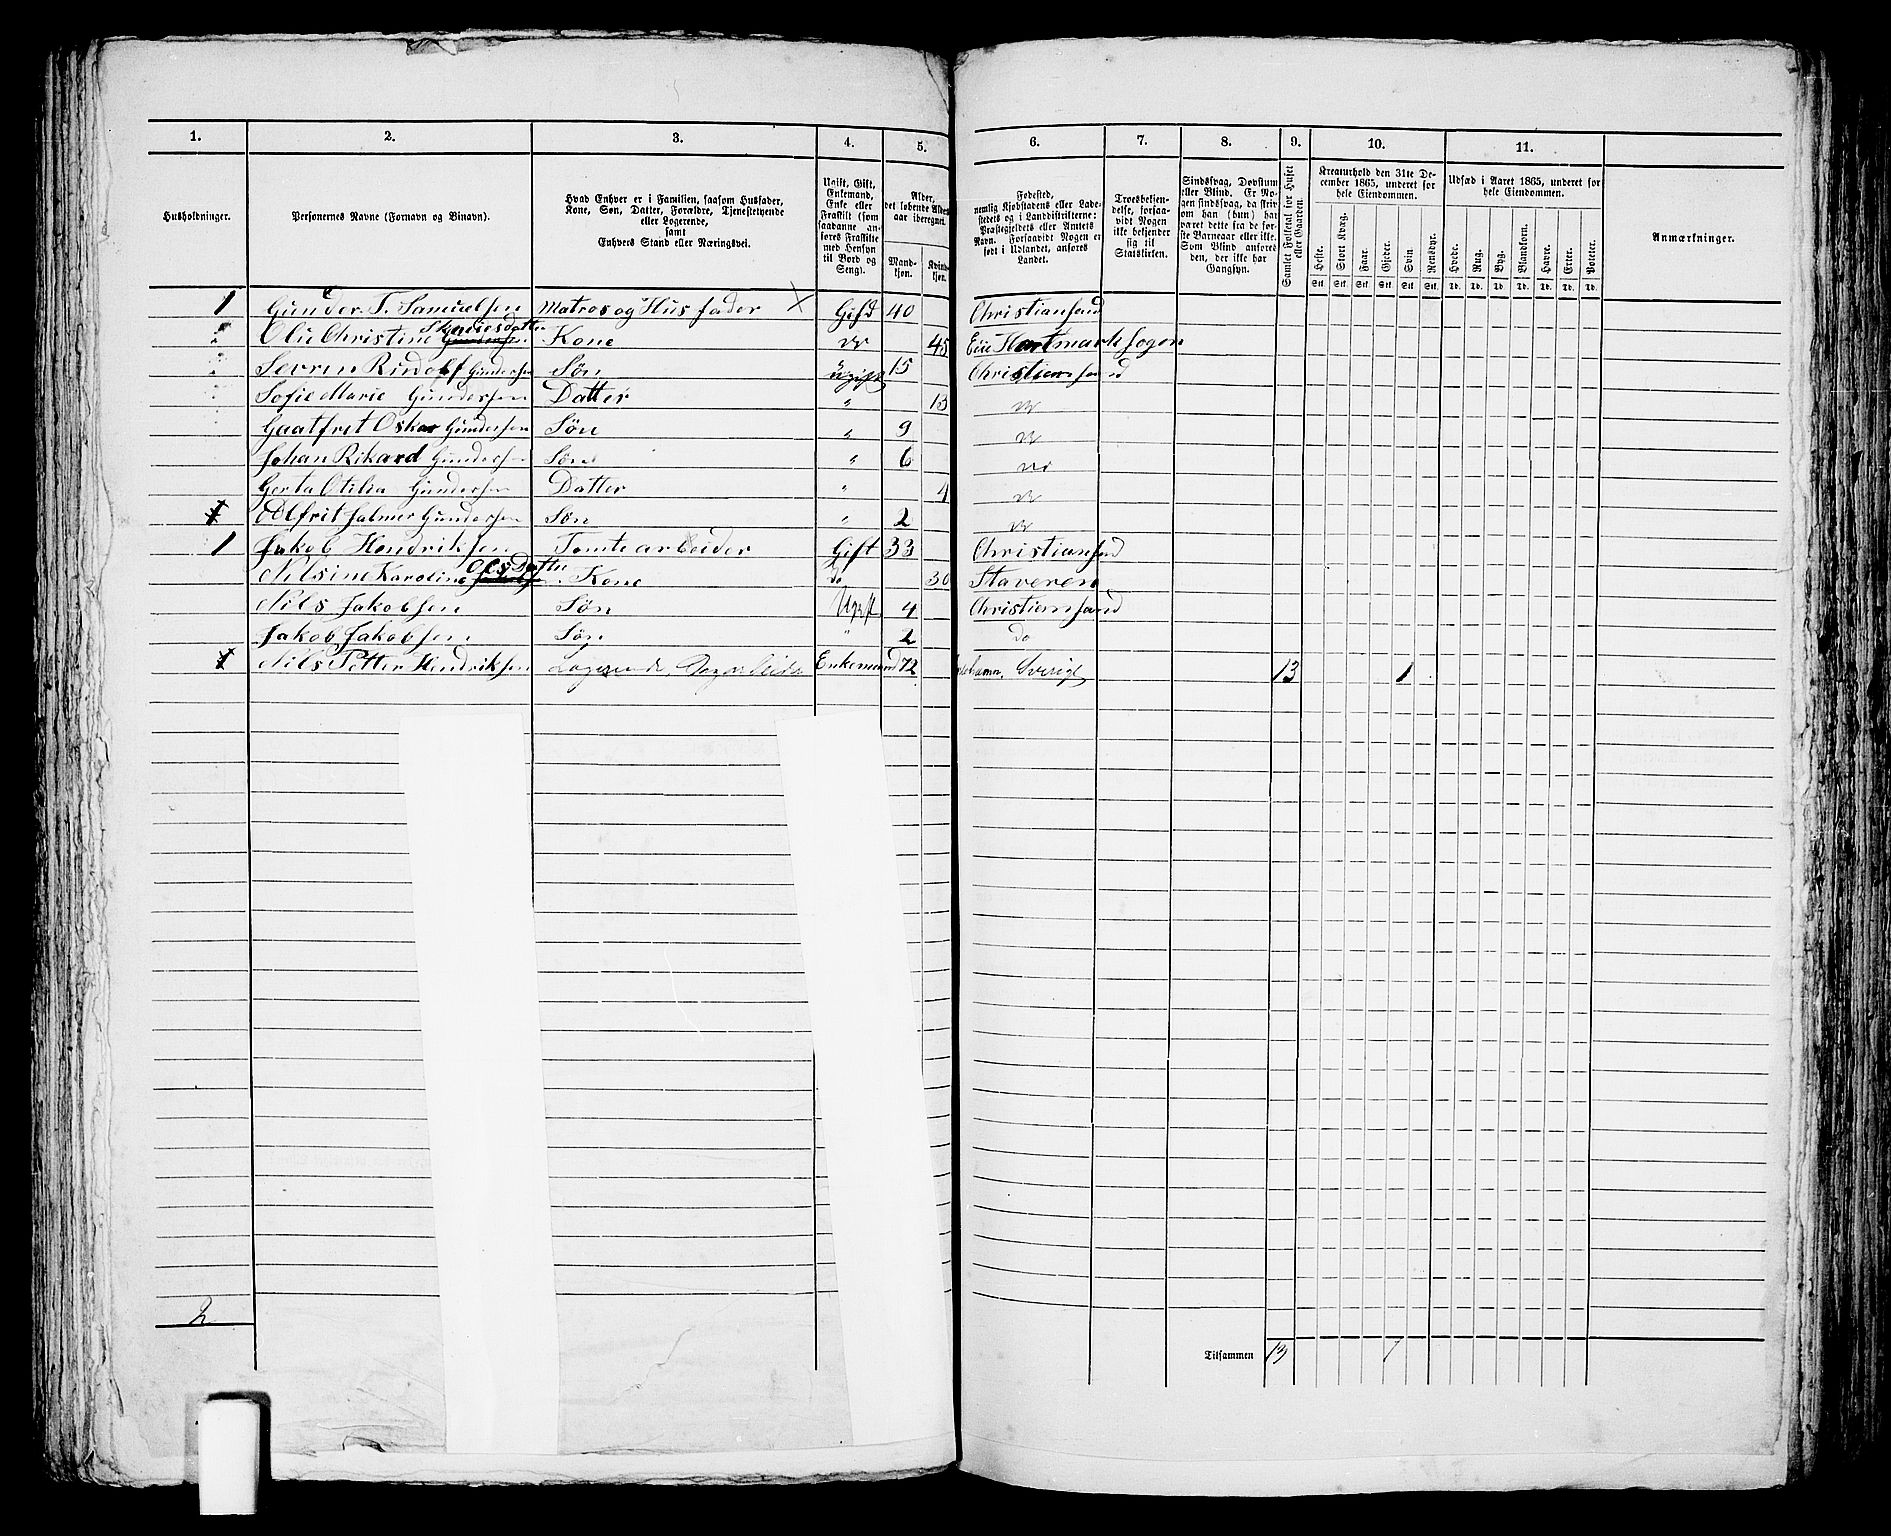 1. 2. 3. 4. 5. 6. 7. 8. 9. 10. 11.
Husholdninger.
Personernes Navne (Fornavn og Binavn).
Hvad Enhver er i Familien, saasom Husfader,
Kone, Søn, Datter, Forældre, Tjenestetyende
eller Logerende,
samt
Enhvers Stand eller Næringsvei.
Ugift, Gift,
Enkemand,
Enke eller
Fraskilt (som
saadanne an-
føres Fraskilte
med Hensyn
til Bord og
Seng).
Alder,
det løbende Alders-
aar iberegnet.
Mand-
kjøn.
Kvind-
kjøn.
Fødested,
nemlig Kjøbstadens eller Lade-
stedets og i Landdistrikterne:
Præstegjeldets eller Amtets
Navn. Forsaavidt Nogen er
født i Udlandet, anføres
Landet.
Troesbekjen-
delse, forsaa-
vidt Nogen
ikke bekjender
sig til
Statskirken.
Sindssvag, Døvstum
eller Blind. Er No-
gen sindssvag, da skriv
om han (hun) har
været dette fra de før-
ste Barneaar eller ikke.
Som Blind anføres
den, der ikke har
Gangsyn.
Samlet Folketal for Huset
eller Gaarden.
Kreaturhold den 31te De-
cember 1865, underet for
hele Eiendommen.
Heste. Stort Kvæg. Faar. Gjeder. Svin. Rensdyr.
Stk. Stk. Stk. Stk. Stk. Stk.
Udsæd i Aaret 1865, underet for
hele Eiendommen.
Hvede. Rug. Byg. Blandkorn. Havre. Erter. Poteter.
Td. Td. Td. Td. Td. Td. Td.
Anmærkninger.
1 Gunder T. Samuelsen Matros og Husfader X Gift 40 Christiansand
Olie Christine Gundersen Kone do 45 Hartmark sogn
Sevrin Rindolf Gundersen Søn ugift 15 Christiansand
Sofie Marie Gundersen Datter " 13 do
Gaatfret Oskar Gundersen Søn " 9 do
Johan Rikard Gundersen Søn " 6 do
Gerta Otilia Gundersen Datter " 4 do
1 Odlfrit Jalmer Gundersen Søn " 2 do
1 Jakob Hendriksen Tomtearbeider Gift 33 Christiansand
Nilsine Karoline Olsdatter Kone do 30 Staveren
Nils Jakobsen Søn Ugift 4 Christiansand
Jakob Jakobsen Søn " 2 do
1 Nils Petter Hendriksen Logerende, Dagarbeider Enkemand 72 Sverige 13 1
2
Tilsammen 13 1